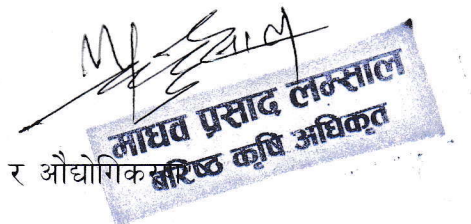 माधव प्रसाद लम्साल
बरिष्ठ कृषि अधिकृत
र औद्योगिक